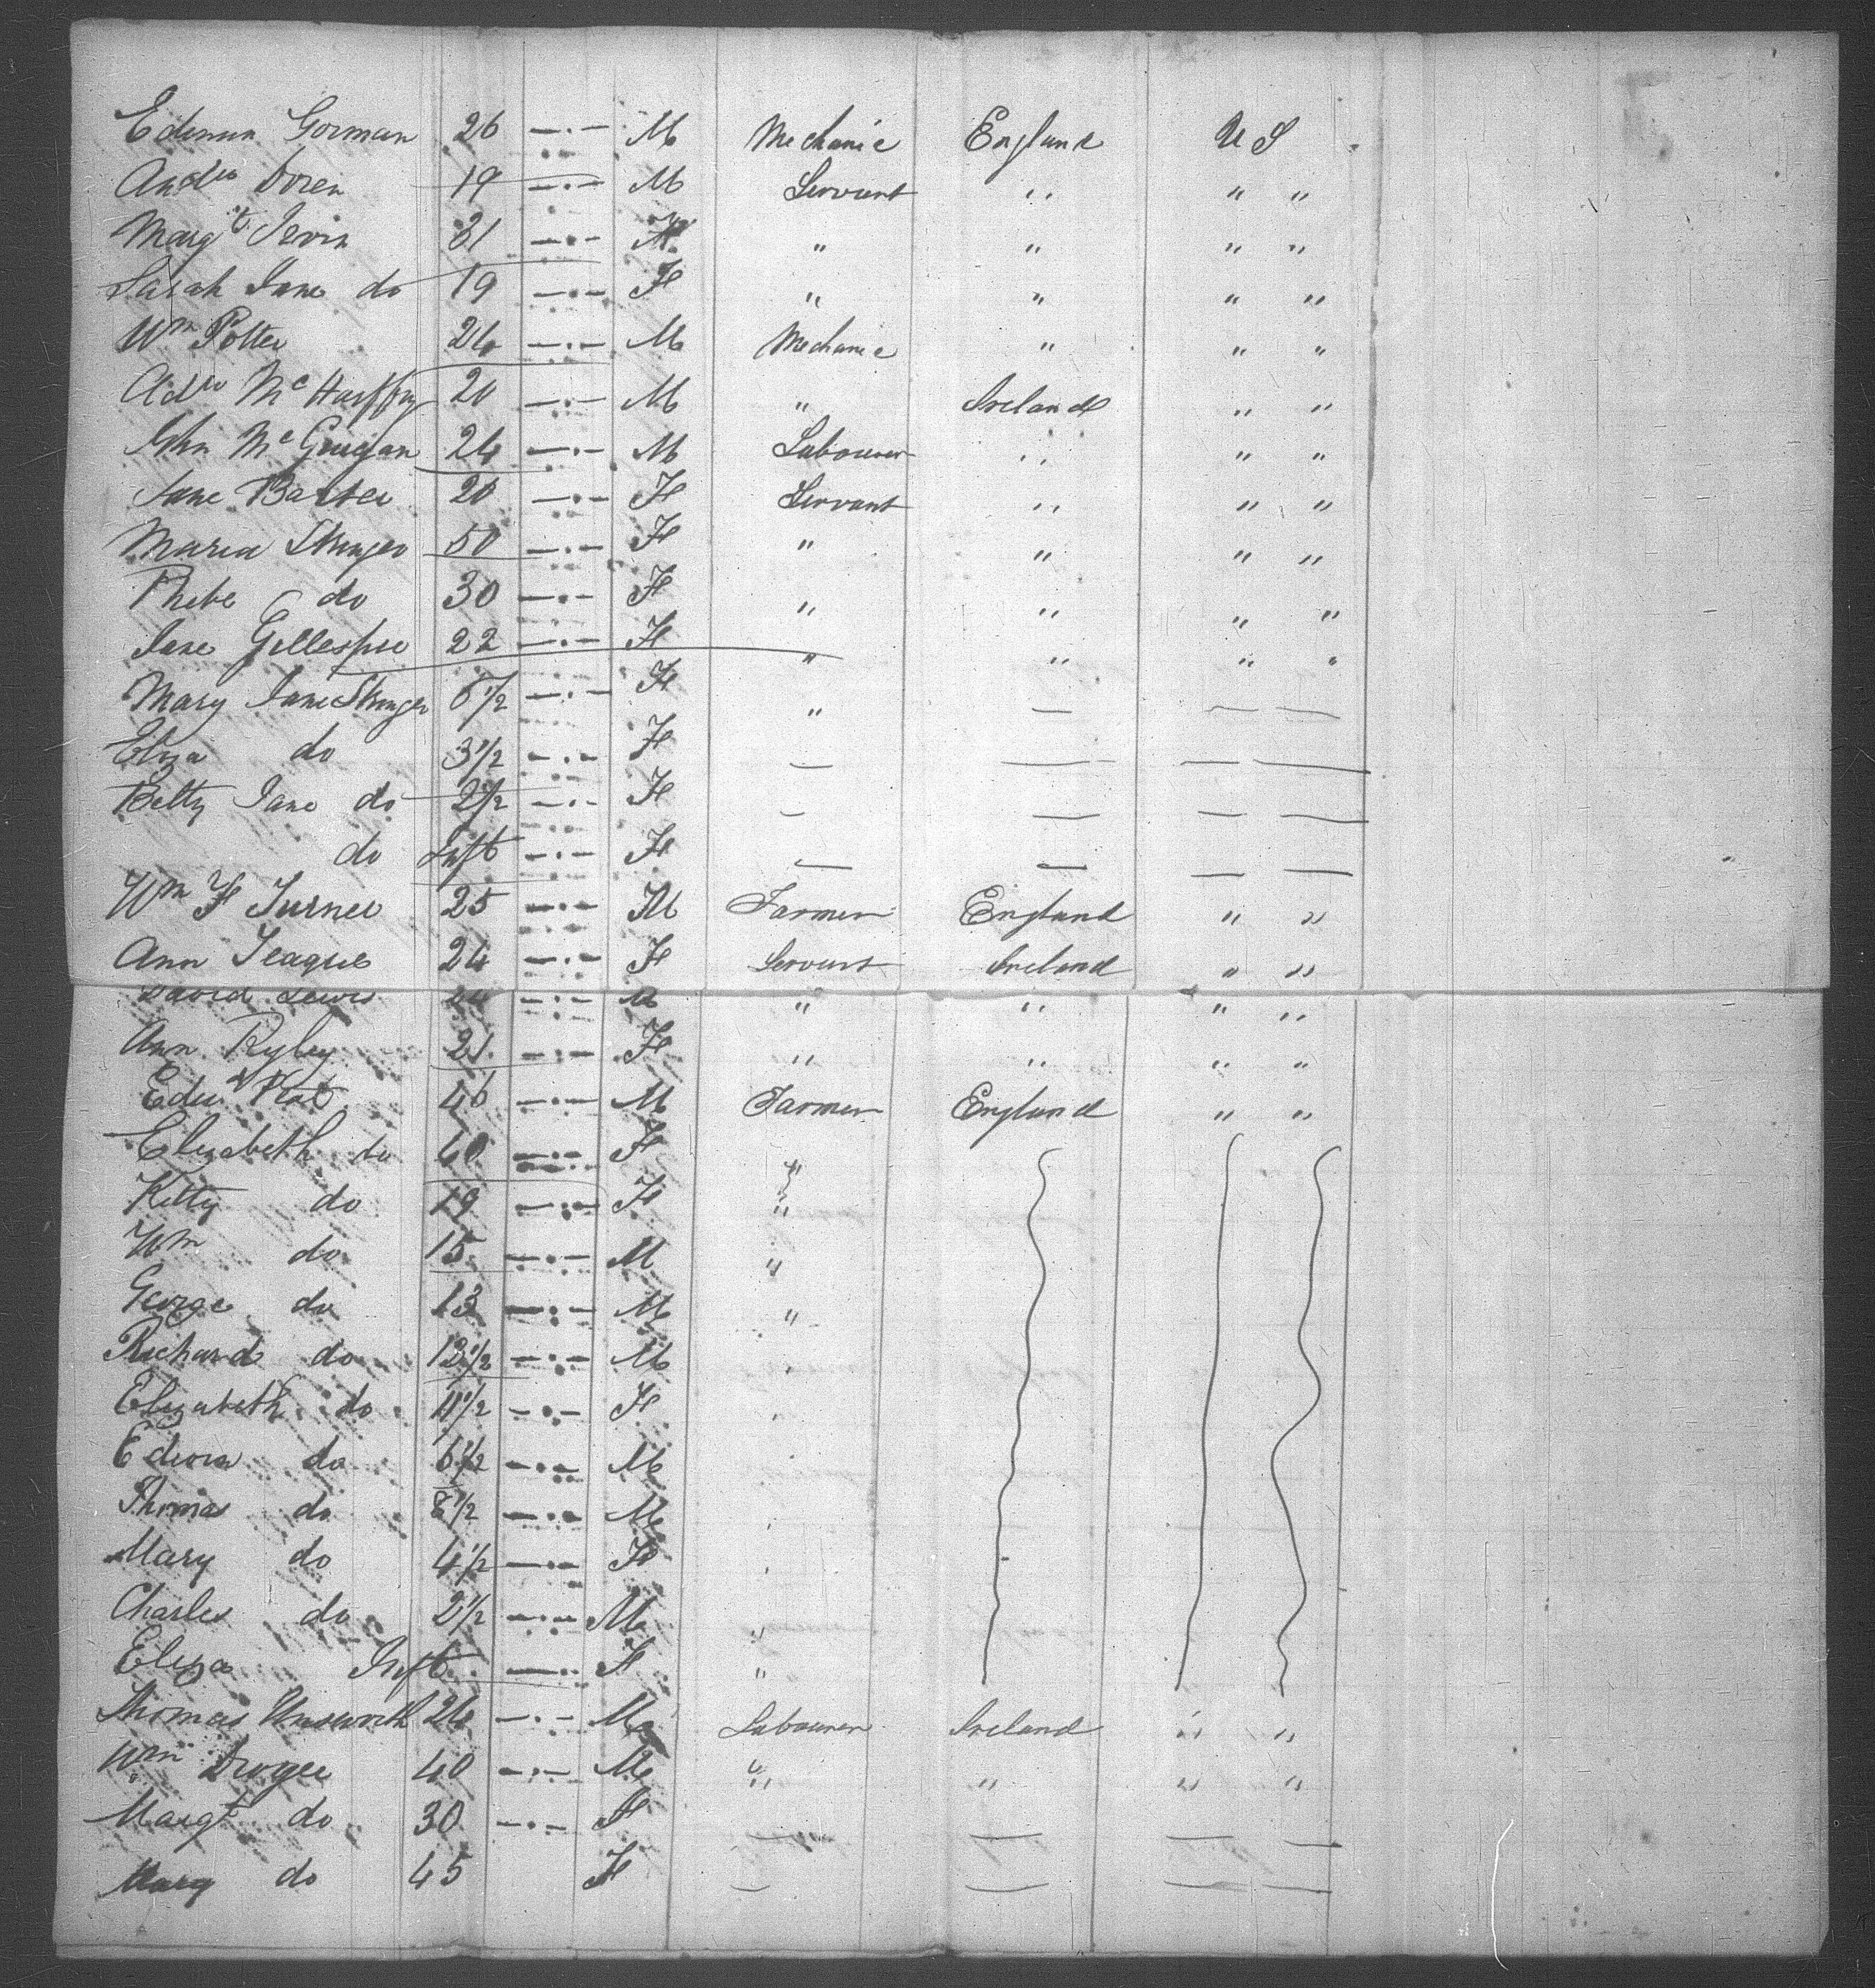 Edmun Gorman 26 —.— M Mechanic England U S
Andw Doren 19 —.— M Servant " " "
Margt Irvin 31 —.— F " " " "
Sarah Jane do 19 —.— F " " " "
Wm Potter 24 —.— M Mechanic " " "
Adw Mc 20 —.— M " Ireland " "
John Mc Guigan 24 —.— M Labourer " " "
Jane Baxter 20 —.— F Servant " " "
Maria Stringer 50 —.— F " " " "
Phebe do 30 —.— F " " " "
Jane Gillespie 22 —.— F " " " "
Mary Jane Stringer 5 1/2 —.— F " — — —
Eliza do 3 1/2 —.— F — — — —
Betty Jane do 2 1/2 —.— F — — — —
do Inft —.— F — — — —
Wm H Turner 25 —.— M Farmer England " "
Ann Teague 24 —.— F Servant Ireland " "
David Lewis 24 —.— M " " " "
Ann Ryley 21 —.— F " " " "
Edwd 46 —.— M Farmer England " "
Elizabeth do 40 —.— F "
Kitty do 19 —.— F "
Wm do 15 —.— M "
George do 13 —.— M "
Richard do 12 1/2 —.— M "
Elizabeth do 11 1/2 —.— F "
Edwin do 6 1/2 —.— M "
Thomas do 8 1/2 —.— M "
Mary do 4 1/2 —.— F "
Charles do 2 1/2 —.— M "
Eliza Inft —.— F "
Thomas Unsworth 24 —.— M Labourer Ireland " "
Wm 40 —.— M " " " "
Margt do 30 —.— F — — — —
Mary do 45 F — — — —